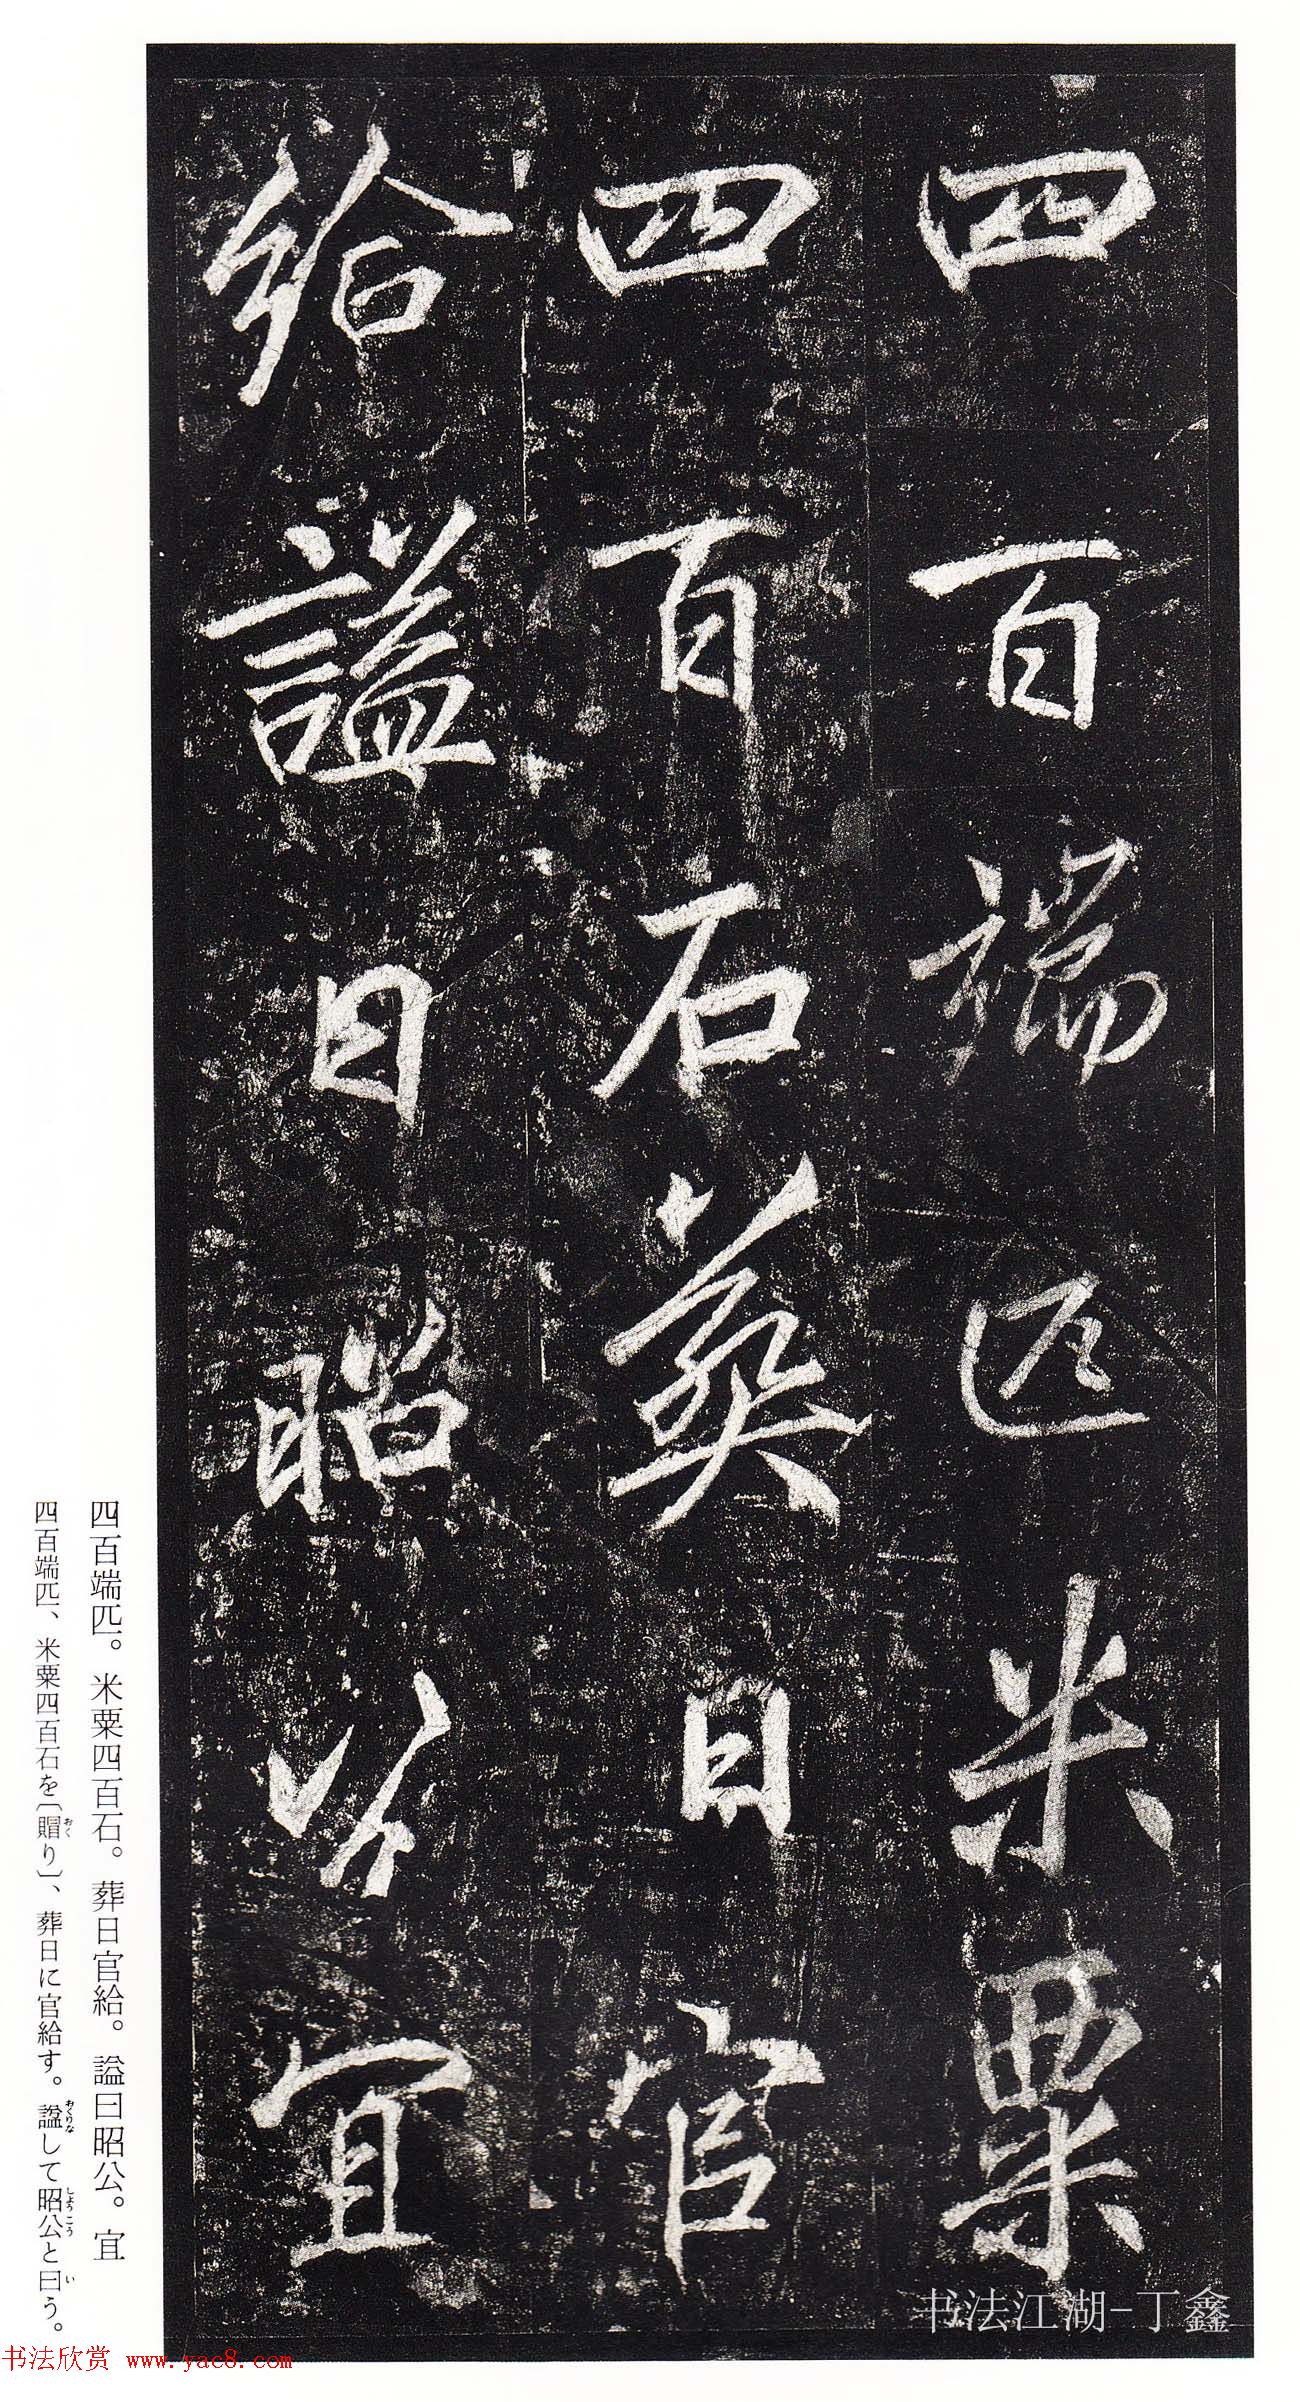 四百端匹米粟
四百石葬日官
給謚曰昭公宜
四百端匹。米粟四百石。葬日官給。謚曰昭公。宜
四百端匹、米粟四百石を〔賵り〕、葬日に官給す。謚して昭公と曰う。
おく
おくりな
しょうこう
い
书法江湖-丁鑫
书法欣赏 www.yac8.com